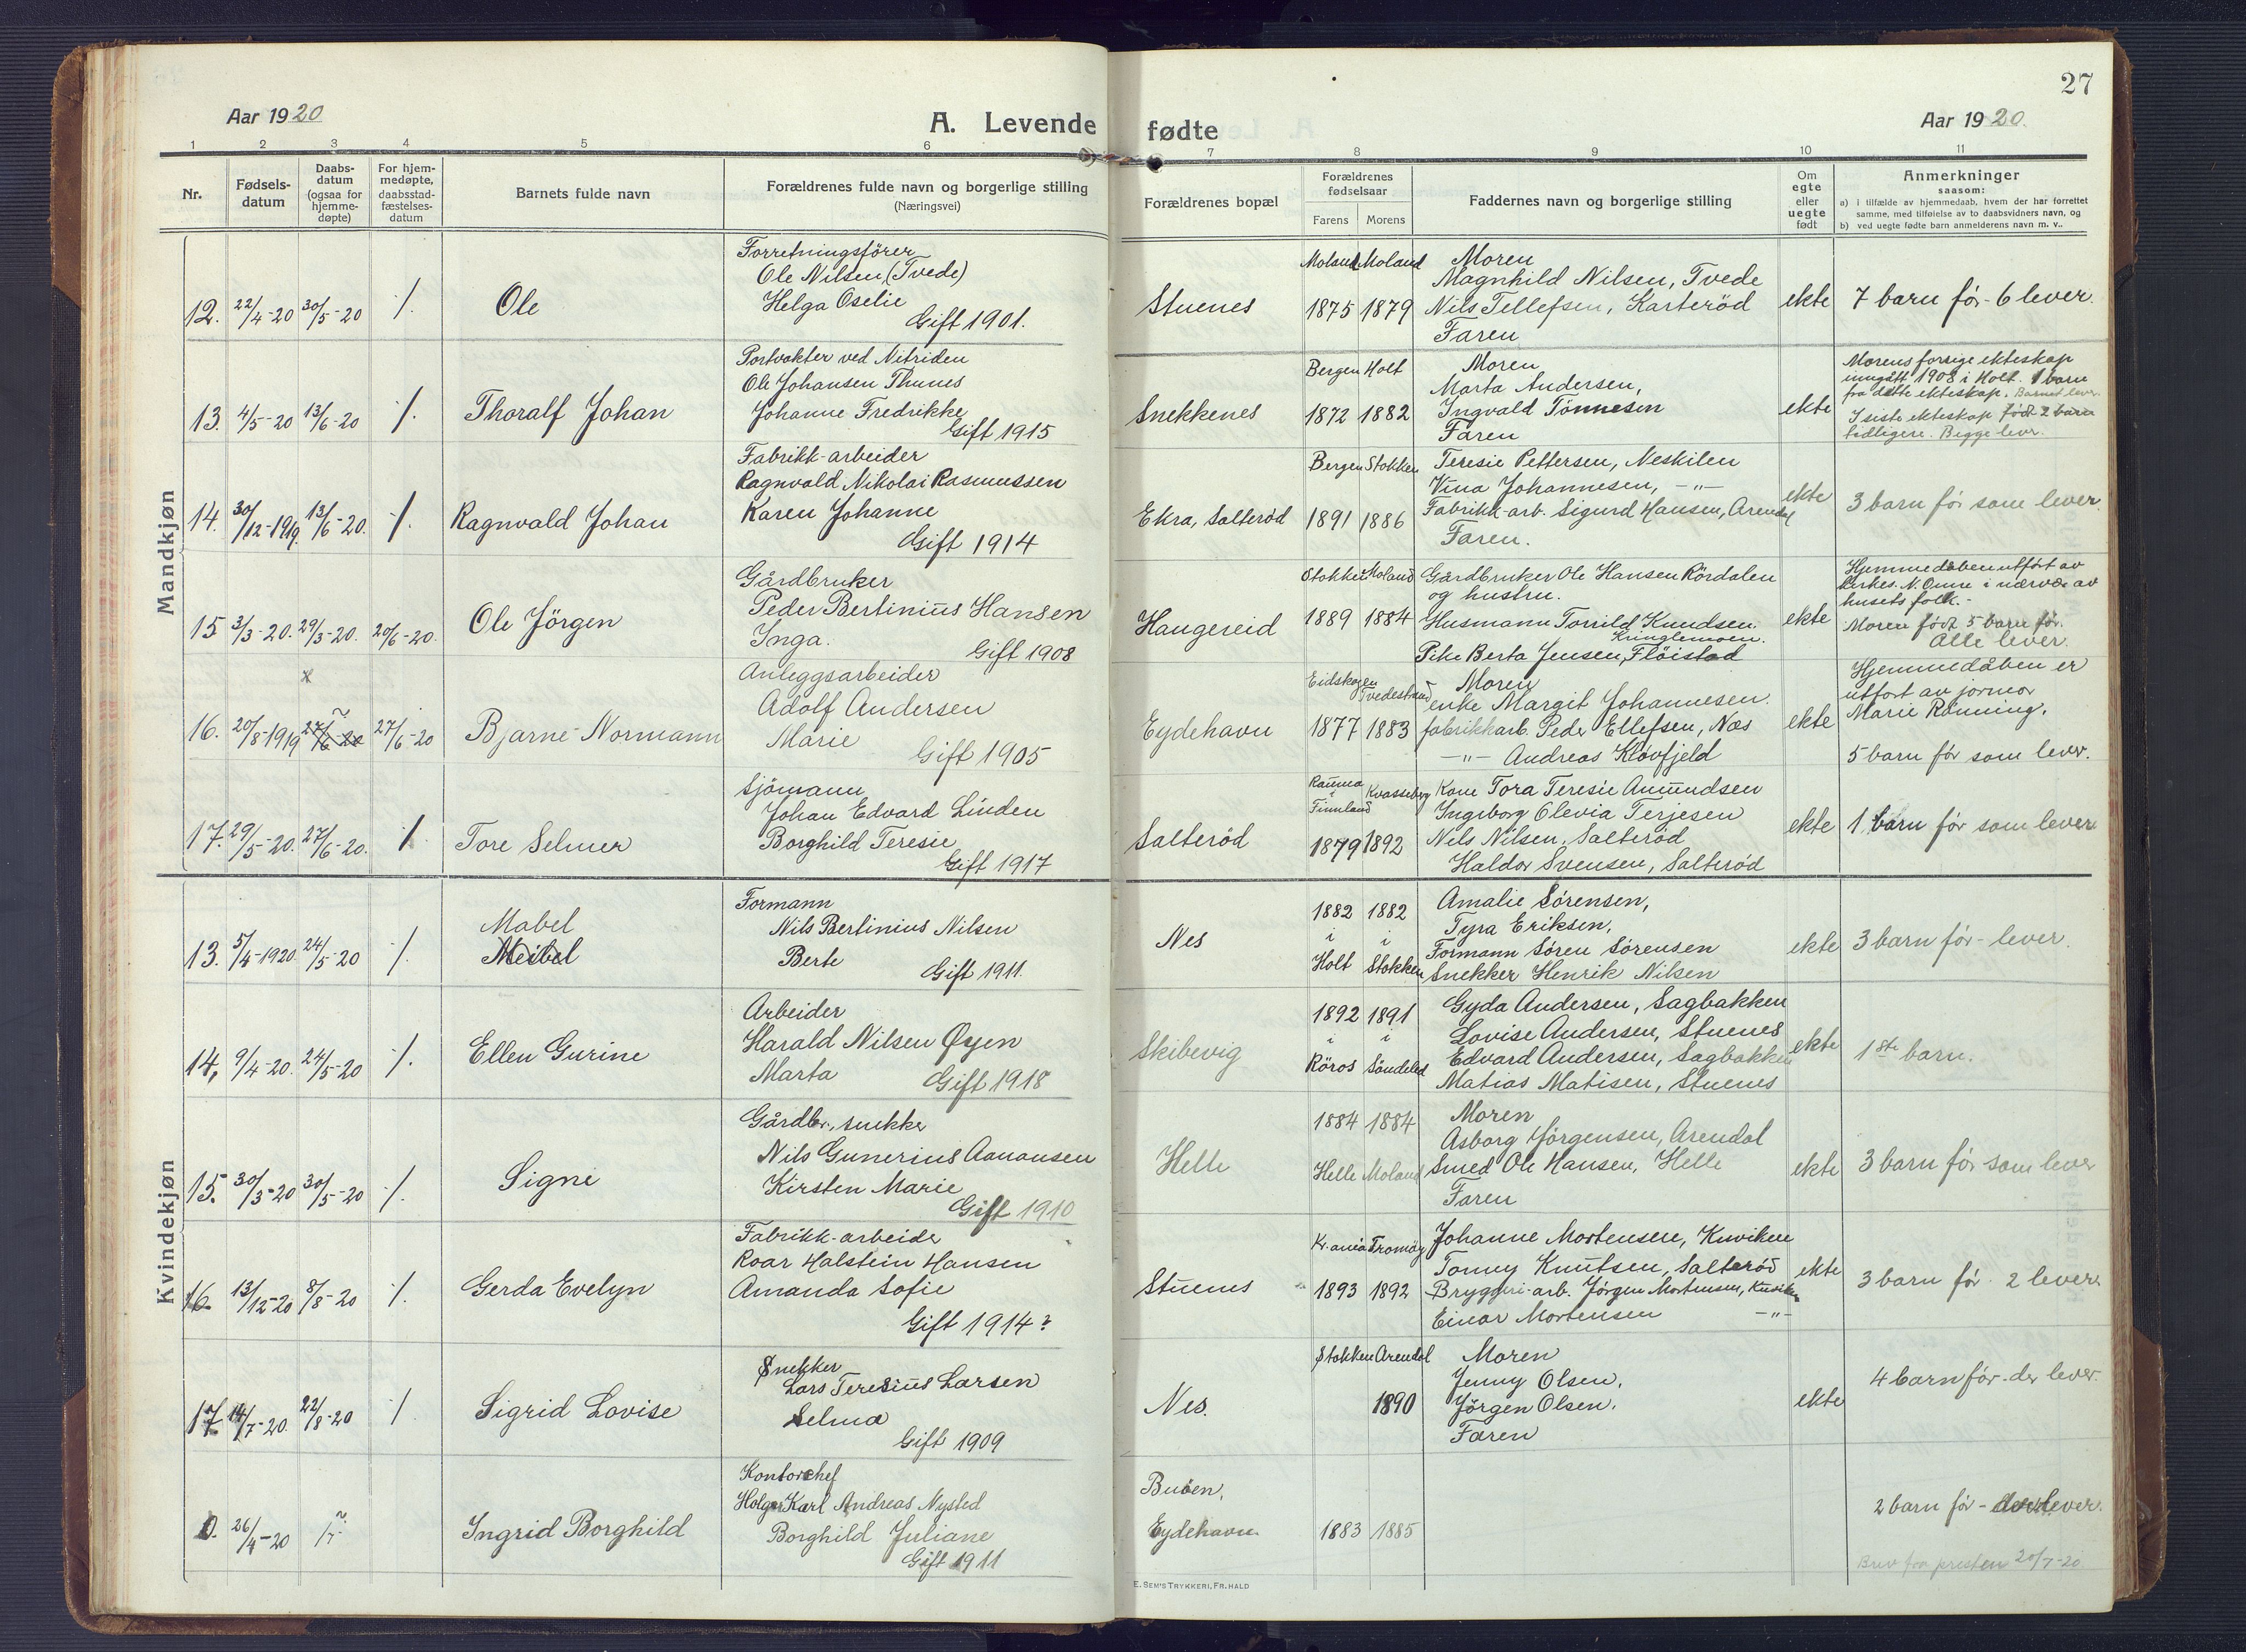 27
Aar 1920
A. Levende fødte
Aar 1920.
1 2 3 4 5 6 7 8 9 10 11
Nr.
Fødsels-
datum
Daabs-
datum
(ogsaa for
hjemme-
døpte)
For hjem-
medøpte,
daabsstad-
fæstelses-
datum
Barnets fulde navn
Forældrenes fulde navn og borgerlige stilling
(Næringsvei)
Forældrenes bopæl
Forældrenes
fødselsaar
Farens Morens
Faddernes navn og borgerlige stilling
Om
egte
eller
uegte
født
Anmerkninger
saasom:
a) i tilfælde av hjemmedaab, hvem der har forrettet
samme, med tilføielse av to daabsvidners navn, og
b) ved uegte fødte barn anmelderens navn m. v..
Mandkjøn
12. 22/4-20 30/5-20 ·/. Ole
Forretningsförer
Ole Nilsen (Tvede)
Helga Oselie
Gift 1901.
Stuenes
Moland Moland
1875 1879
Moren
Magnhild Nilsen, Tvede
Nils Tellefsen, Karteröd
Faren
ekte
7 barn før - 6 lever.
13. 4/5-20 13/6-20 ·/. Thoralf Johan
Portvakter ved Nitriden
Ole Johansen Thunes
Johanne Fredrikke
Gift 1915
Snekkenes
Bergen Holt
1872 1882
Moren
Marta Andersen,
Ingvald Tönnesen
Faren
ekte
Morens forrige ekteskap
inngått 1908 i Holt. 1 barn
fra dette ekteskap. Barnet lever.
I siste ekteskap født 2 barn
tidligere. Begge lever.
14. 30/12-1919. 13/6-20. ·/. Ragnvald Johan
Fabrikk-arbeider
Ragnvald Nikolai Rasmussen
Karen Johanne
Gift 1914
Ekra, Salteröd
Bergen Stokken
1891 1886
Teresie Pettersen, Neskilen
Vina Johannesen, -"-
Fabrikk-arb. Sigurd Hansen, Arendal
Faren.
ekte
3 barn før som lever.
15 3/3-20. 29/3-20. 20/6-20. Ole Jörgen
Gårdbruker
Peder Bertinius Hansen
Inga.
Gift 1908
Haugereid
Stokken Moland
1889 1884
Gårdbruker Ole Hansen Rördalen
og hustru.
Husmann Torrild Knudsen
Kringlemoen.
Pike Berta Jensen, Flöistad
ekte
Hjemmedåben utført av
kirkes. N. Omre i nærvær av
husets folk.-
Moren født 5 barn før.
Alle lever.
16. 20/8-1919 27/6-20 27/6-20 Bjarne Normann
Anleggsarbeider
Adolf Andersen
Marie
Gift 1905
Eydehavn
Eidskogen Tvedestrand
1877 1883
Moren
enke Margit Johannesen.
fabrikkarb. Peder Ellefsen, Næs
-"- Andreas Kløvfjeld
ekte
Hjemmedåben er
utført av jormor
Marie Rønning.
5 barn før som lever.
17. 29/5-20. 27/6-20. ·/. Tore Selmer
Sjömann
Johan Edvard Linden
Borghild Teresie
Gift 1917
Salteröd
Rauma i Finnland Kvasseberg
1879 1892
Kone Tora Teresie Amundsen
Ingeborg Olevia Terjesen
Nils Nilsen, Salteröd
Haldor Svensen, Salteröd
ekte
1 barn før som lever
Kvindekjøn
13. 5/4-1920 24/5-20 ·/. Mabel
Meibel
Formann
Nils Bertinius Nilsen
Berte
Gift 1911.
Nes
1882 1882
i i
Holt Stokken
Amalie Sörensen,
Tyra Eriksen,
Formann Sören Sörensen
Snekker Henrik Nilsen
ekte
3 barn før - lever.
14, 9/4-20. 24/5-20 ·/. Ellen Gurine
Arbeider
Harald Nilsen Øyen
Marta
Gift 1918
Skibevig
1892 1891
i i
Röros Söndeled
Gyda Andersen, Sagbakken
Lovise Andersen, Stuenes
Edvard Andersen, Sagbakken
Matias Matisen, Stuenes
ekte
1ste barn.
15. 30/3-20 30/5-20 ·/. Signe
Gårdbr., snekker
Nils Gunerius Aanansen
Kirsten Marie
Gift 1910
Helle
1884 1884
Helle Moland
Moren
Asborg Jörgensen, Arendal
Smed Ole Hansen, Helle
Faren
ekte
3 barn før som lever
16. 13/12-20 8/8-20 ·/. Gerda Evelyn
Fabrikk-arbeider
Roar Halstein Hansen
Amanda Sofie
Gift 1914?
Stuenes
Kr.ania Tromöy
1893 1892
Johanne Mortensen, Kuviken
Tonny Knutsen, Salteröd
Bryggeri-arb. Jörgen Mortensen, Kuviken
Einar Mortensen -"-
ekte
3 barn før. 2 lever
17 14/7-20. 22/8-20 ·/. Sigrid Lovise
Snekker
Lars Teresius Larsen
Selma
Gift 1909
Nes.
Stokken Arendal
1890
Moren
Jenny Olsen,
Jörgen Olsen.
Faren
ekte
4 barn før - der lever.
0. 26/4-20 Ingrid Borghild
Kontorchef
Holger Karl Andreas Nysted
Borghild Juliane
Gift 1911
Buöen,
Eydehavn
1883 1885
2 barn før - der lever.
Brev fra presten 20/7-20
E. SEM'S TRYKKERI, FR.HALD